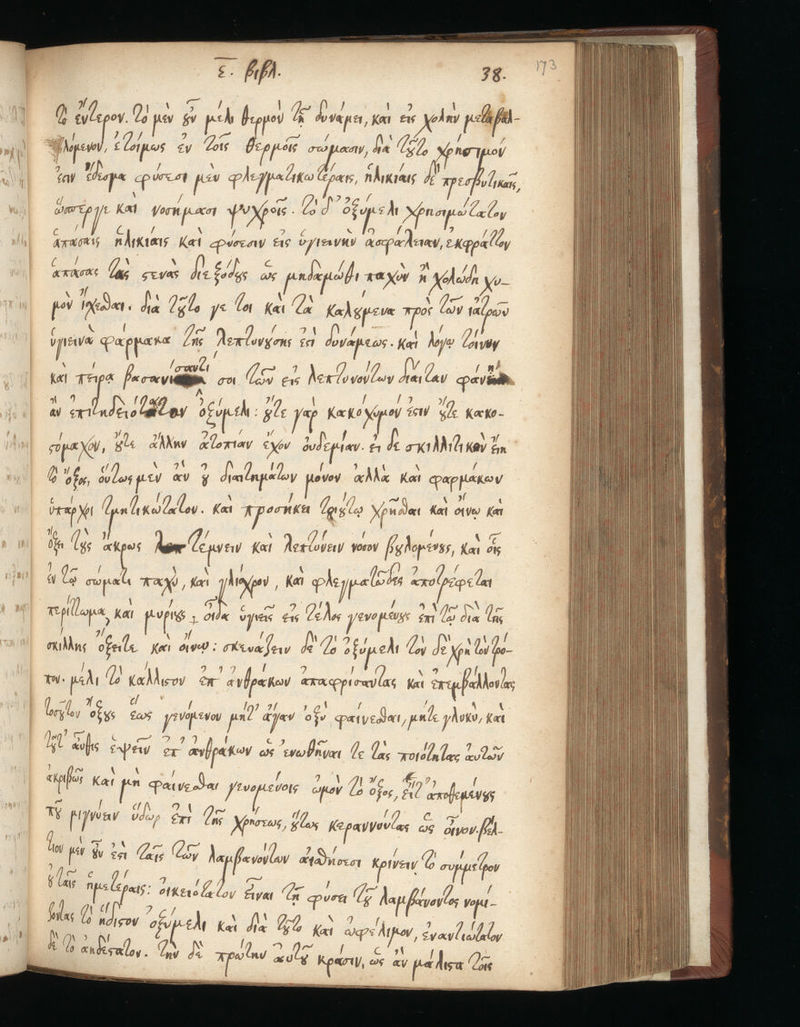 ε̅. βιβλ. 38. 173
τὸ ἔντερον. τὸ μὲν ȣ̓͂ν μέλι θερμὸν τῇ δυνάμει, καὶ εἰς χολὴν μεταβαλ-
λόμενον, ἑτοίμως ἐν τοῖς θερμοῖς σώμασιν, διὰ τȣ͂το χρήσιμόν
ἐϛιν ἔδεσμα φύσεσι μὲν φλεγματικωτέραις, ἡλικίαις δὲ πρεσβυτικαῖς,
ὥσπέργε καὶ νοσήμασι ψυχροῖς. τὸ δ' ὀξύμελι χρησιμώτατον
ἁπάσαις ἡλικίαις καὶ φύσεσιν εἰς ὑγιεινὴν ἀσφάλειαν, ἐκφράττον
ἁπάσας τὰς ϛενὰς διεξόδȣς ὡς μηδαμώθι παχὺν ἢ χολώδη χυ-
μὸν ἴχεσθαι. διὰ τȣ͂το γε τοι καὶ τὰ καλȣ́μενα πρὸς τῶν ἰατρῶν
ὑγιεινὰ φάρμακα τῆς λεπτυνȣ́σης ἐϛὶ δυνάμεως. καὶ λόγῳ τοίνυν
καὶ πείρᾳ βασανίσαντί σοι τῶν εἰς λεπτυνόντων δίαιταν φανείη
ἂν ἐπιτηδειότατον ὀξύμελι: ȣ̓́τε γὰρ κακόχυμόν ἐϛιν ȣ̓́τε κακο-
ϛόμαχον, ȣ̓́τε ἄλλην ἀτοπίαν ἔχον ȣ̓δεμίαν. εἰ δὲ σκιλλιτικὸν εἴη
τὸ ὄξος, ὅυτως μὲν ἂν ȣ̓ διαιτημάτων μόνον ἀλλὰ καὶ φαρμάκων
ὑπάρχοι τμητικώτατον. καὶ προσήκει τοιȣ́τῳ χρῆσθαι καὶ ὄινῳ καὶ
ὄξει τȣ̀ς ἄκρως τέμνειν καὶ λεπτύνειν νόσον βȣλομένȣς, καὶ οἷς
ἐν τῷ σώματι παχὺ, καὶ γλίσχρον, καὶ φλεγματῶδες ἀποτρέφεται
περίττωμα, καὶ μυρίȣς οἶδα ὑγιεῖς εἰς τέλος γενομένȣς ἐπὶ τῷ διὰ τῆς
σκίλλης ὄξει τε καὶ ὄινῳ: σκευάζειν δὲ τὸ ὀξύμελι τὸν δὲ χρὴ τὸν τρό-
πον. μέλι τὸ κάλλιϛον ἐπ' ἀνθράκων ἀπαφρίσαντας καὶ ἐπεμβάλλοντας
τοσȣ͂τον ὄξȣς ἕως γενόμενον μήτ' ἄγαν ὀξὺ φαίνεσθαι, μήτε γλυκὺ, καὶ
τȣ͂τ' ἆυθις ἑψεῖν ἐπ' ἀνθράκων ὡς ἑνωθῆναι τε τὰς ποιότητας ἀυτῶν
ἀκριβῶς καὶ μὴ φαίνεσθαι γευομένοις ὠμὸν τὸ ὄξος, εἶτ' ἀποθεμένȣς
πȣ μιγνύειν ὕδωρ ἐπὶ τῆς χρήσεως, ȣ̔́τως κεραννύντας ὡς ὄινον. βέλ-
τιον μὲν ȣ̓͂ν ἐϛὶ ταῖς τῶν λαμβανόντων αἰσθήσεσι κρίνειν τὸ σύμμετρον
ȣ̓ ταῖς ἡμετέραις: ὀικειότατον εἶναι τῇ φύσει τȣ͂ λαμβάνοντος νομί-
ζοντας τὸ ἥδιϛον ὀξύμελι καὶ διὰ τȣ͂το καὶ ὠφέλιμον, ἐναντιώτατον
δὲ τὸ ἀηδέϛατον. τὴν δὲ πρώτην ἀυτȣ͂ κρᾶσιν, ὡς ἂν μάλιϛα τοῖς